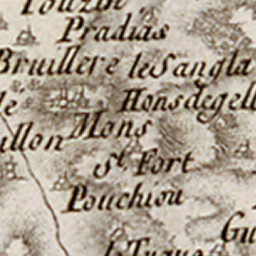 Touzin
Pradias
Bruillere le Sangla
Honsdegell
Mons
ullon
St. Fort
Pouchiou
Gu